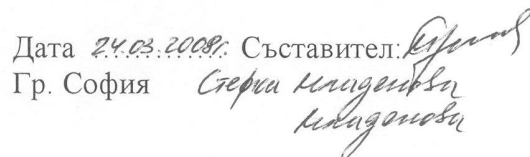 Дата 24.03.2008г. Съставител:
Гр. София Стефка Младенова
Младенова